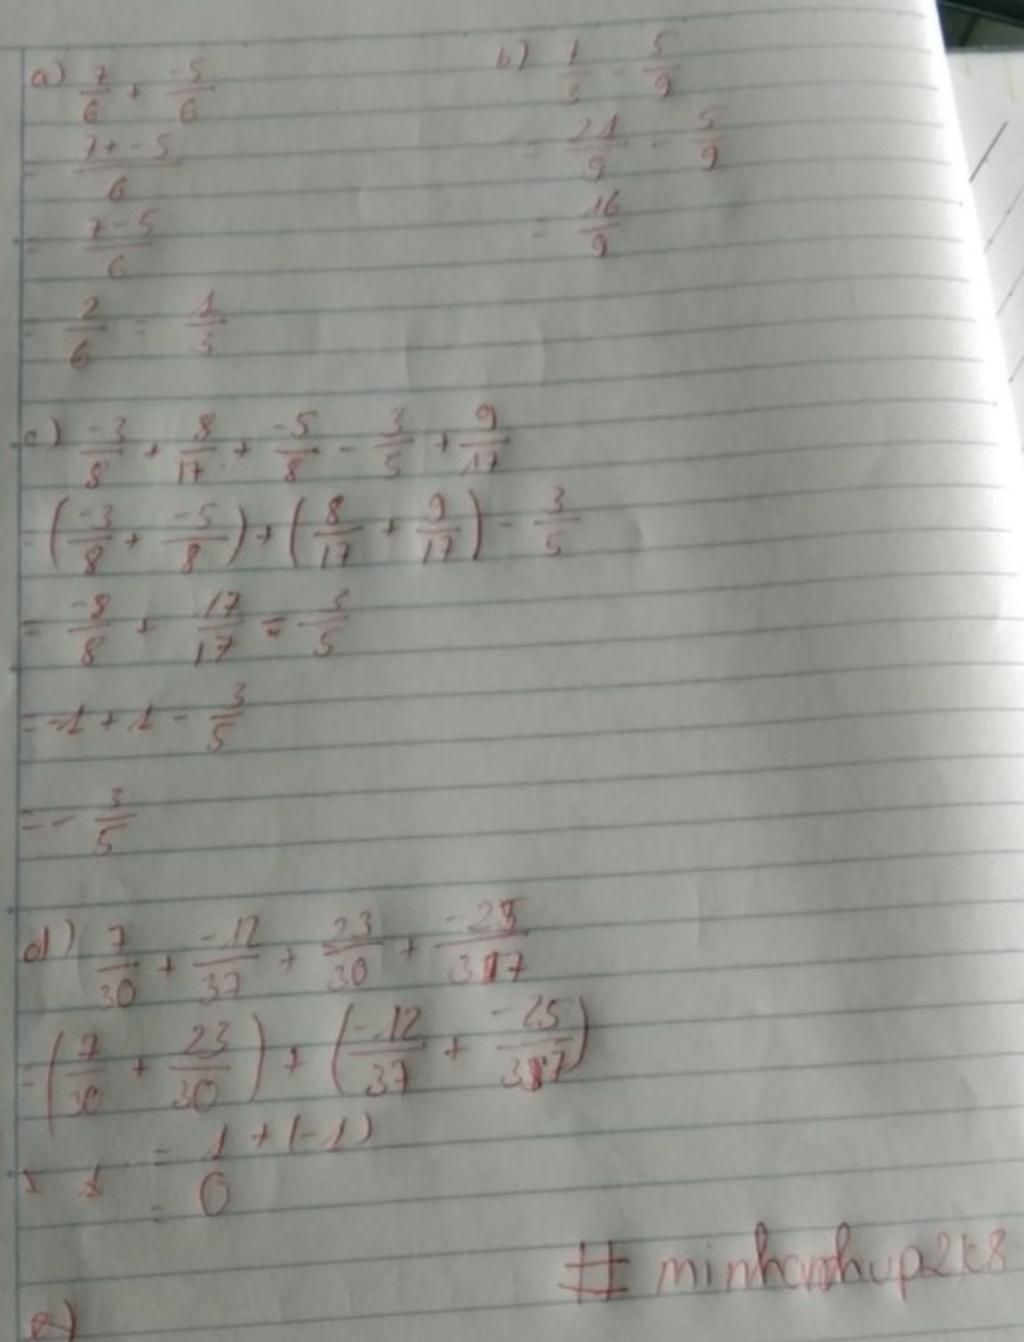 a) 7/6 + -5/6
= 7+-5/6
= 7-5/6
= 2/6 = 1/3
b) 7/3 - 5/9
= 21/9 - 5/9
= 16/9
c) -3/8 + 8/17 + -5/8 - 3/5 + 9/17
= (-3/8 + -5/8) + (8/17 + 9/17) - 3/5
= -8/8 + 17/17 - 3/5
= -1 + 1 - 3/5
= - 3/5
d) 7/30 + -12/37 + 23/30 + -25/37
= (7/30 + 23/30) + (-12/37 + -25/37)
= 1 + (-1)
= 0
# minhanhvp2k8
e)